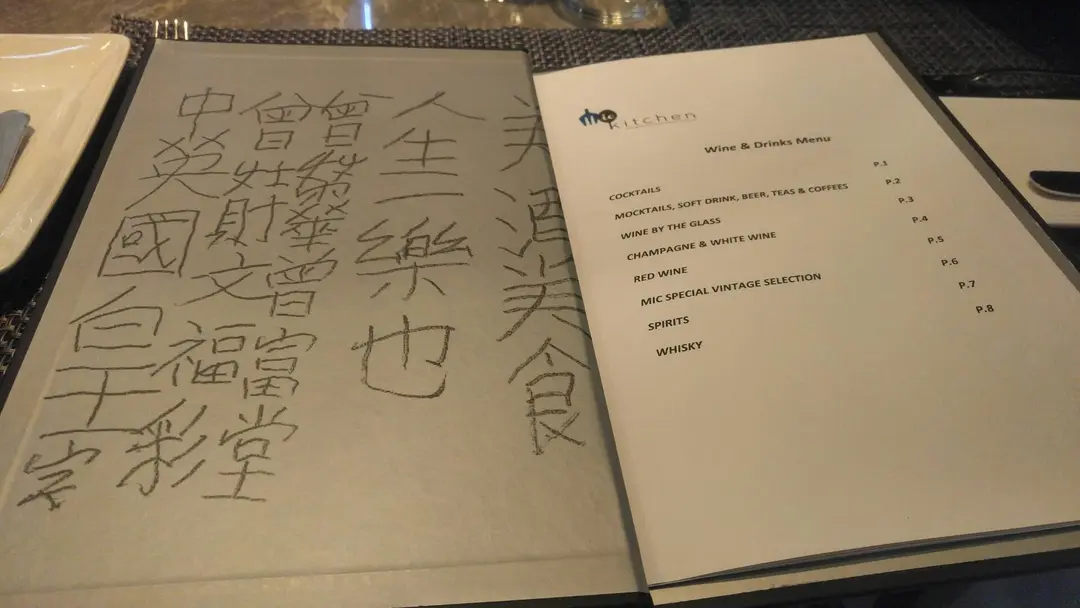 美酒美食
人生一樂也
曾華曾富堂
曾財文福彩
中英國皇
kitchen
Wine & Drinks Menu
COCKTAILS P.1
MOCKTAILS, SOFT DRINK, BEER, TEAS & COFFEES P.2
WINE BY THE GLASS P.3
CHAMPAGNE & WHITE WINE P.4
RED WINE P.5
MIC SPECIAL VINTAGE SELECTION P.6
SPIRITS P.7
WHISKY P.8